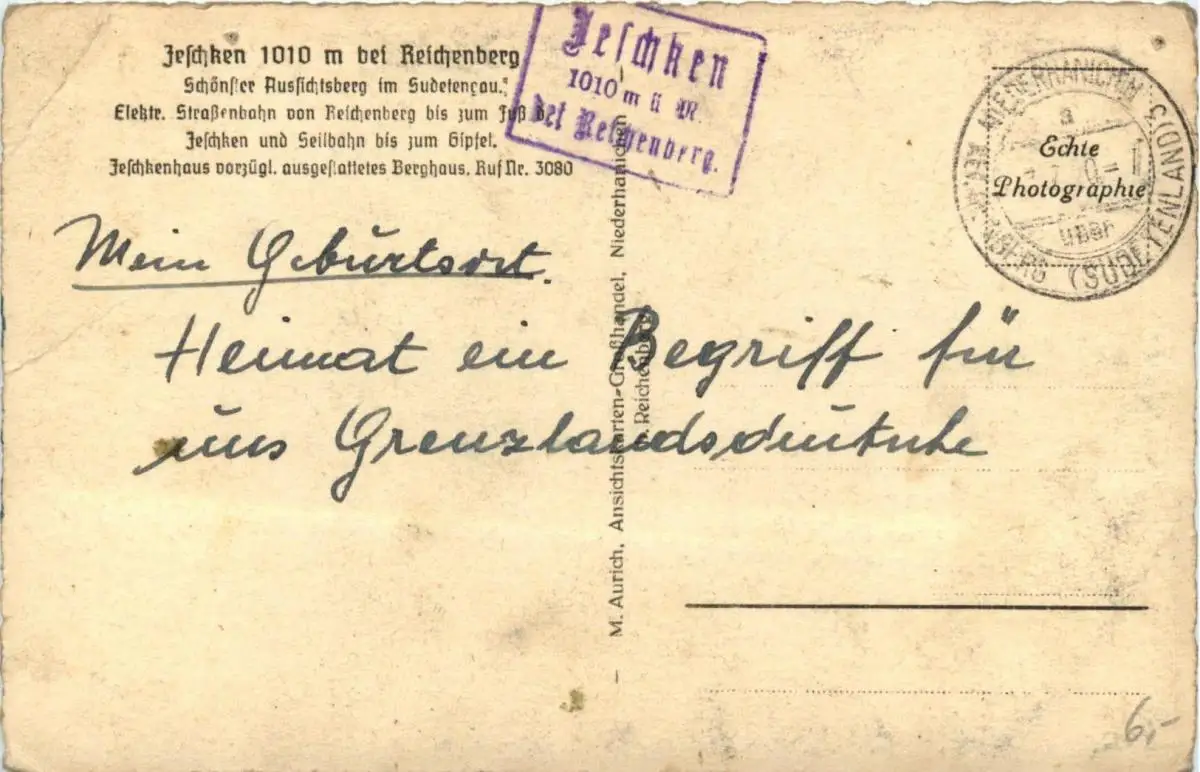 Jeschken 1010 m bei Reichenberg
Schönster Aussichtsberg im Sudetengau.
Elektr. Straßenbahn von Reichenberg bis zum Fuß
Jeschken und Seilbahn bis zum Gipfel.
Jeschkenhaus vorzügl. ausgestattetes Berghaus. Ruf Nr. 3080
Jeschken
1010 m ü M.
bei Reichenberg.
NIEDERHANICHEN
(SUDETENLAND) 3
a
Echte
Photographie
Mein Geburtsort.
Heimat ein Begriff für
uns Grenzlandsdeutsche
M. Aurich, Ansichtskarten-Großhandel, Niederhanichen
b. Reichenberg
6,-